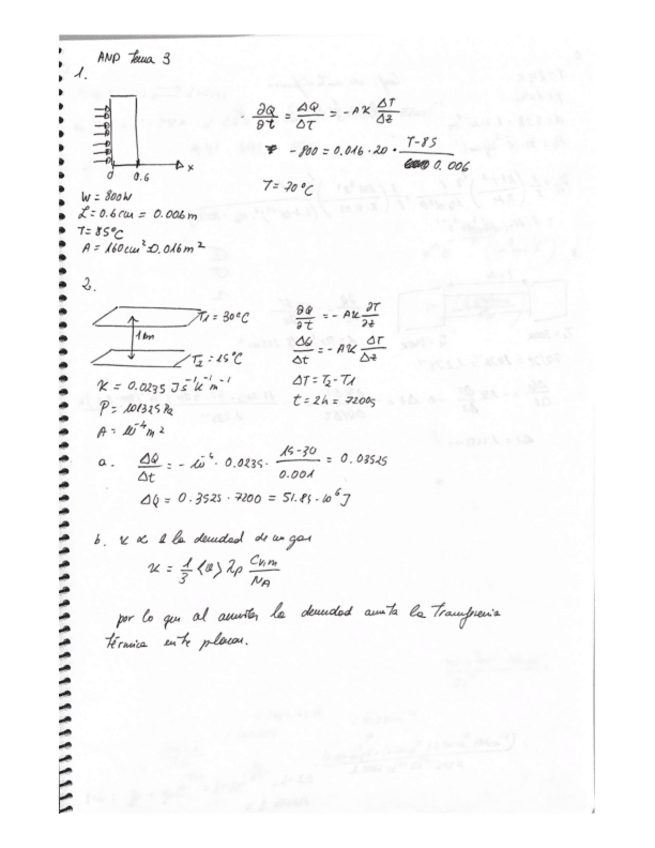 AMP Tema 3
1.
∂Q/∂t = ΔQ/ΔT = -Aκ ΔT/Δz
-800 = 0.016 · 20 · T-85/0.006
T = 70°C
0 0.6 x
W = 800W
L = 0.6 cm = 0.006 m
T = 85°C
A = 160 cm² = 0.016 m²
2.
T1 = 30°C
1 mm
T2 = 15°C
∂Q/∂t = -Aκ ∂T/∂z
ΔQ/Δt = -Aκ ΔT/Δz
ΔT = T2 - T1
t = 2h = 7200s
κ = 0.0235 J s⁻¹ K⁻¹ m⁻¹
P = 101325 Pa
A = 10⁻⁴ m²
a. ΔQ/Δt = -10⁻⁴ · 0.0235 · 15-30/0.001 = 0.03525
ΔQ = 0.3525 · 7200 = 51.84 · 10⁶ J
b. κ ∝ a la densidad de un gas
κ = 1/3 ⟨v⟩ λρ Cv,m/NA
por lo que al aumentar la densidad aumenta la transferencia
térmica entre placas.